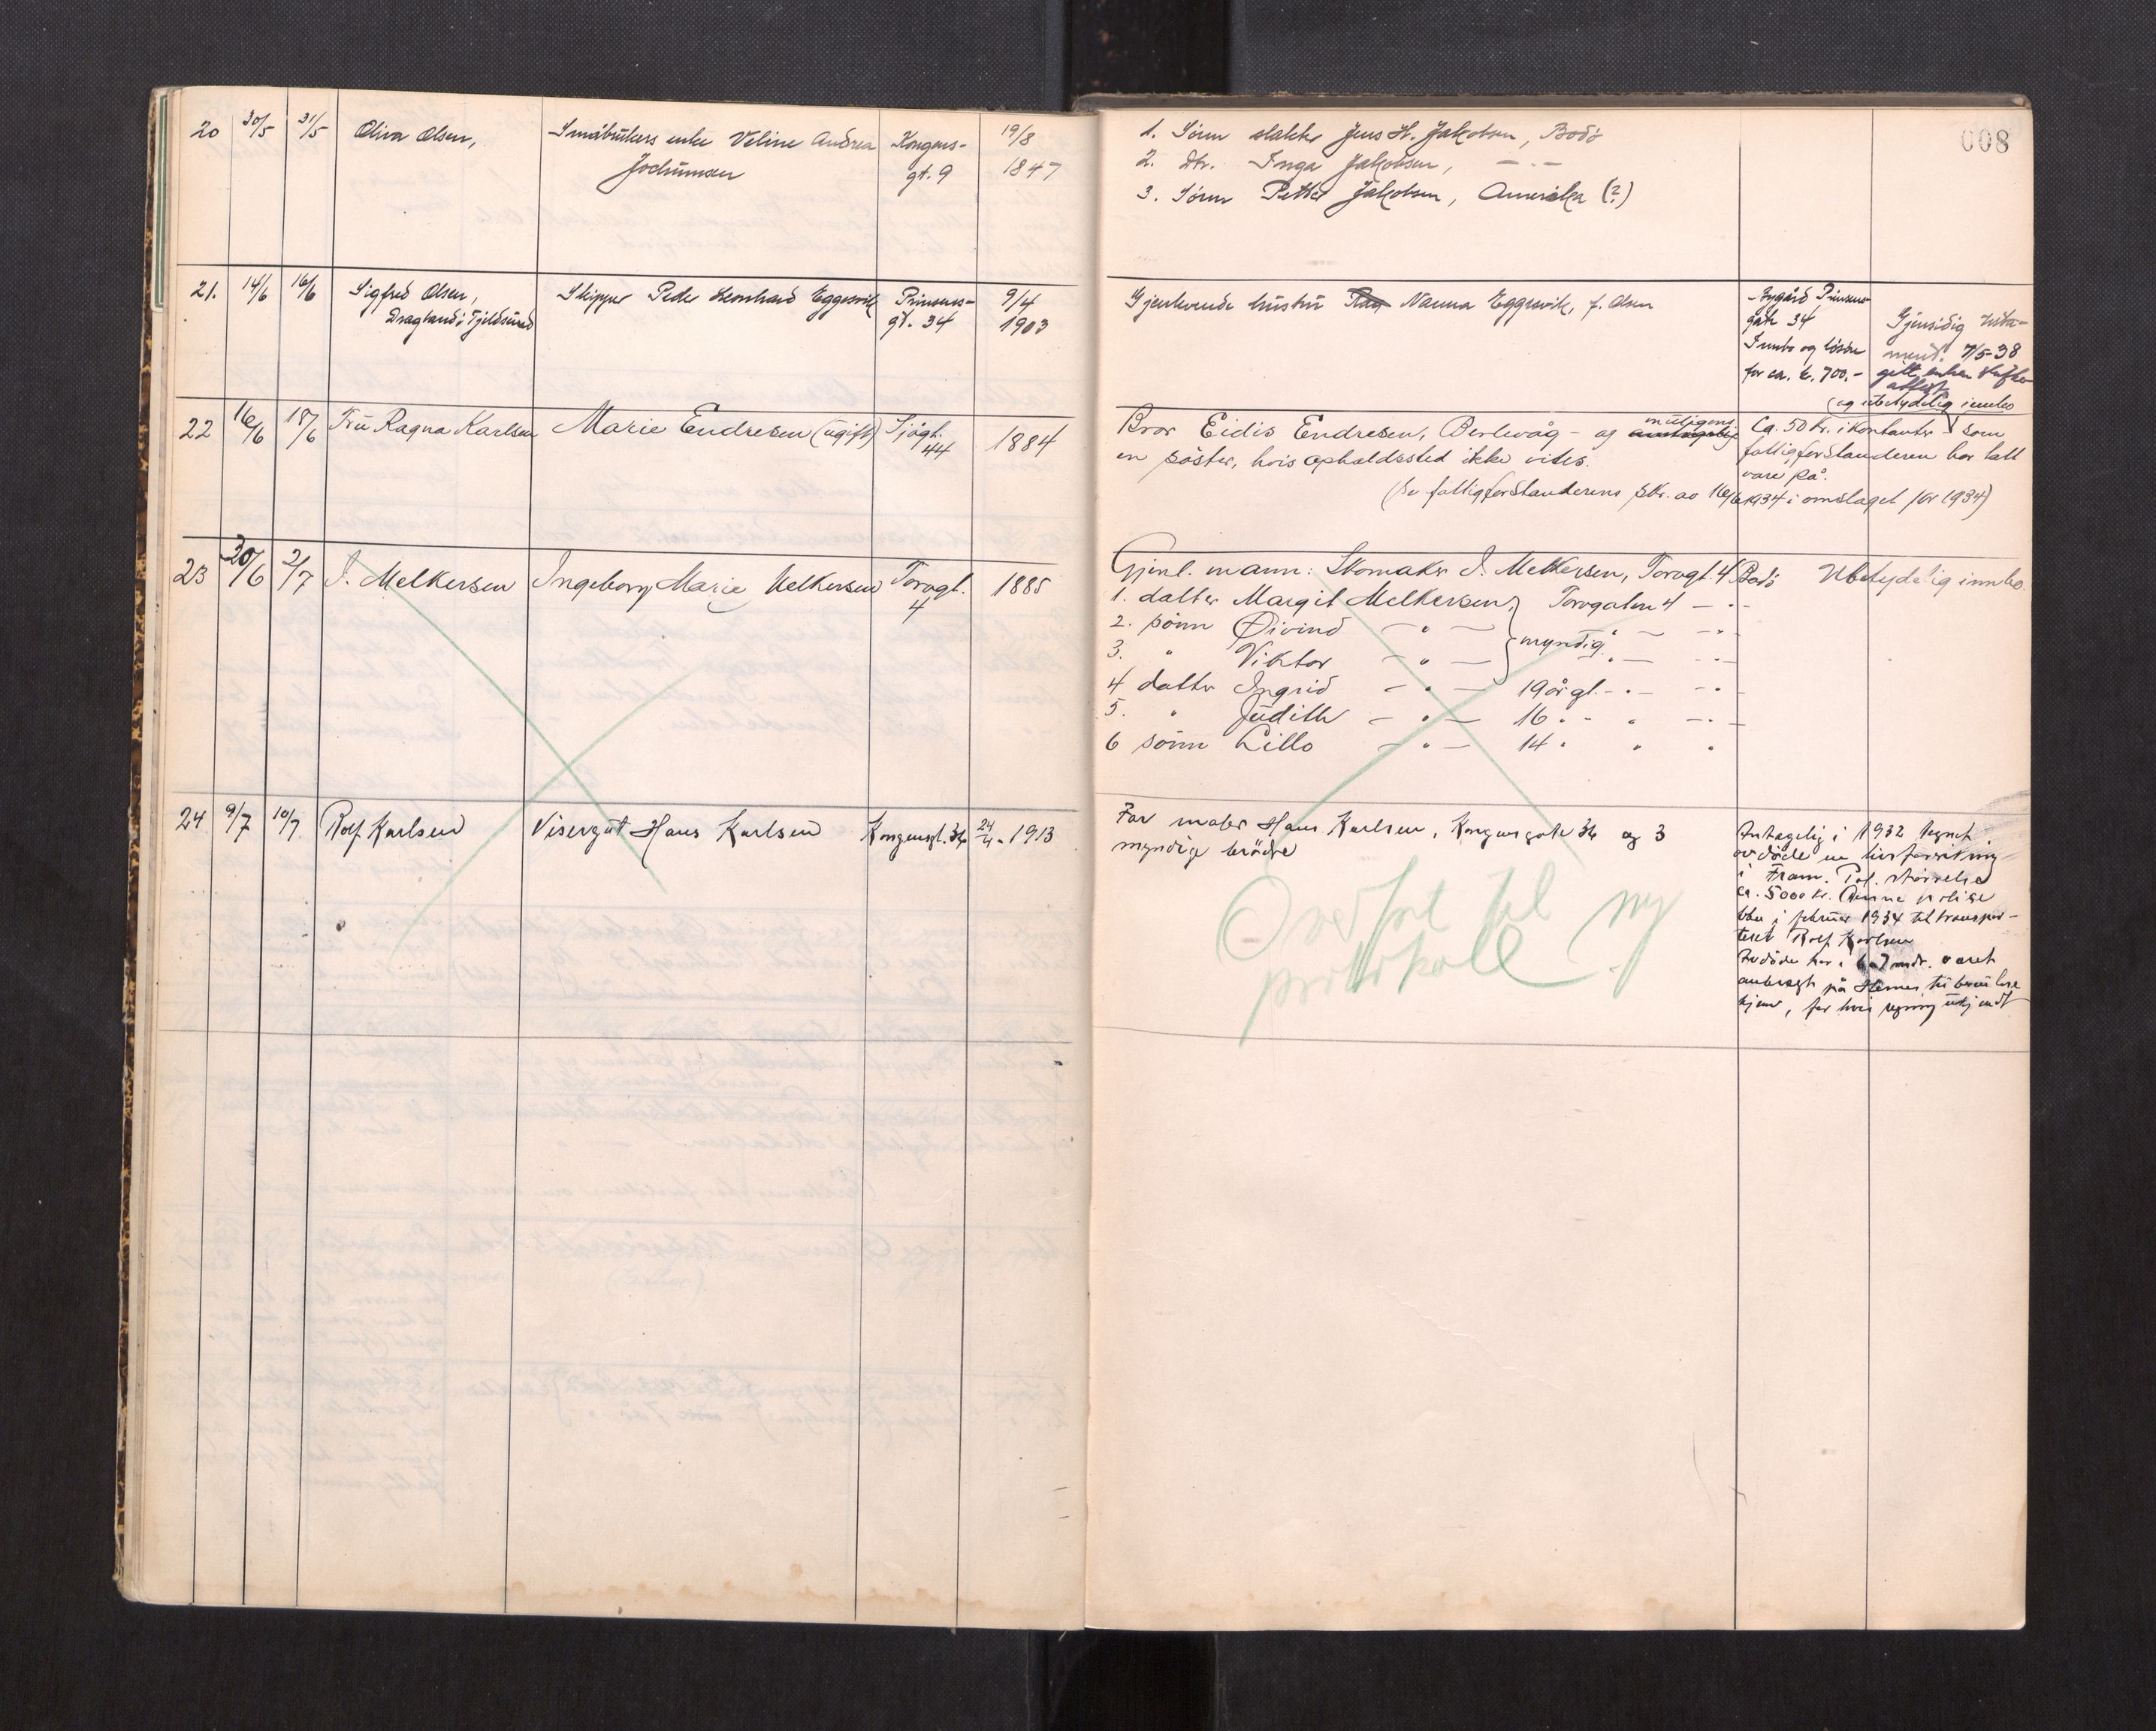 008
20 30/5 31/5 Oliva Olsen, Småbrukers enke Veline Andrea Kongens- 19/8
Jochumsen gt. 9 1847
1. Sønn slakter Jens H. Jakobsen, Bodø
2. Dtr. Inga Jakobsen, —"—
3. Sønn Petter Jakobsen, Amerika (?)
21. 14/6 16/6 Sigfred Olsen, Skipper Peder Leonhard Eggesvik Prinsens- 9/4
Dragland i Tjeldsund gt. 34 1903
Gjenlevende hustru Nanna Eggesvik, f. Olsen
Bygård Prinsens
gate 34
Innbo og løsøre
for ca. kr. 700.-
Gjensidig testa-
ment. 7/5-38
gitt enken skifte
attest
22 16/6 18/6 Fru Ragna Karlsen Marie Endresen (ugift) Sjøgt. 1884
44
Bror Eidis Endresen, Berlevåg - og muligens
en søster, hvis opholdssted ikke vites.
(Se fattigforstanderens skr. av 16/6 1934 i omslaget for 1934)
(og ubetydelig innbo
Ca. 50 kr. i kontanter som
fattigforstanderen har tatt
vare på.
23 30/6 2/7 I. Melkersen Ingeborg Marie Melkersen Torvgt. 1885
4
Gjenl. mann: Skomaker I. Melkersen, Torvgt. 4 Bodø Ubetydelig innbo.
1. datter Margit Melkersen, Torvgaten 4 — " -
2. sønn Øivind — " — myndig. " — — " -
3. " Viktor — " — — " — — " -
4 datter Ingrid — " — 19 år gl. — " — — " -
5. " Judith — " — 16 " - " — " -
6 sønn Lillo — " — 14 " " "
24 9/7 10/7 Rolf Karlsen Visergut Hans Karlsen Kongensgt. 36 24/4 - 1913
Far maler Hans Karlsen, Kongensgate 36 og 3
myndige brødre
Antagelig i 1932 tegnet
avdøde en livsforsikring
i Fram. Pol. størrelse
ca. 5000 kr. Denne polise
blev i februar 1934 transpor-
tert Rolf Karlsen
Avdøde har i 6 a 7 mdr. været
anbragt på tuberkulose
hjem, for hvis regning ukjendt
Overført til ny
protokoll